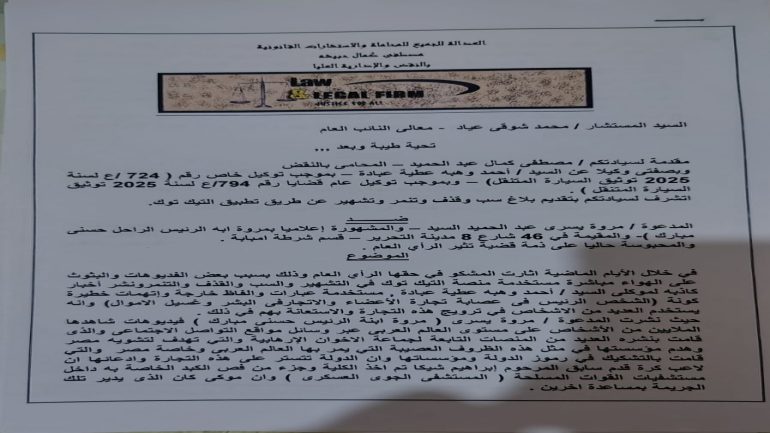 العدالة للجميع للمحاماة والاستشارات القانونية
مصطفى كمال
بالنقض والإدارية العليا
Law
& LEGAL FIRM
JUSTICE FOR ALL
السيد المستشار / محمد شوقى عياد - معالى النائب العام
تحية طيبة وبعد ...
مقدمة لسيادتكم / مصطفى كمال عبد الحميد – المحامى بالنقض
وبصفتى وكيلا عن السيد / أحمد وهبه عطية عبادة – بموجب توكيل خاص رقم ( 724 /ع لسنة
2025 توثيق السيارة المتنقل) – وبموجب توكيل عام قضايا رقم 794/ع لسنة 2025 توثيق
السيارة المتنقل ) .
اتشرف لسيادتكم بتقديم بلاغ سب وقذف وتنمر وتشهير عن طريق تطبيق التيك توك.
ضـــــد
المدعوة / مروة يسرى عبد الحميد السيد – والمشهورة إعلاميا بمروة ابه الرئيس الراحل حسنى
مبارك )- والمقيمة فى 46 شارع 8 مدينة التحرير – قسم شرطة امبابة .
والمحبوسة حاليا على ذمة قضية تثير الرأي العام .
الموضوع
في خلال الأيام الماضية أثارت المشكو في حقها الرأي العام وذلك بسبب بعض الفديوهات والبثوث
على الهواء مباشرة مستخدمة منصة التيك توك في التشهير والسب والقذف والتنمرونشر أخبار
كاذبه لموكلى السيد / أحمد وهبه عطية عبادة , مستخدمة عبارات والفاظ خارجة وإتهمات خطيرة
كونة (الشخص الرئيس فى عصابة تجارة الأعضاء والاتجارفى البشر وغسيل الاموال) وانه
يستخدم العديد من الاشخاص في ترويج هذه التجارة والاستعانة بهم في ذلك .
حيث نشرت المدعوة / مروة يسرى ( مروة ابنة الرئيس حسنى مبارك ) فيديوهات شاهدها
الملايين من الأشخاص على مستوى العالم العربى عبر وسائل مواقع التواصل الاجتماعى والذى
قامت بنشره العديد من المنصات التابعة لجماعة الاخوان الإرهابية والتي تهدف لتشويه مصر
وهدم مؤسستها في مثل هذه الظروف العصيبة التي يمر بها العالم العربى وخاصة مصر والتي
قامت بالتشكيك فى رموز الدولة ومؤسساتها وان الدولة تتستر على هذه التجارة وادعائها ان
لاعب كرة قدم سابق المرحوم إبراهيم شيكا تم اخذ الكلية وجزء من فص الكبد الخاصة به داخل
مستشفيات القوات المسلحة ( المستشفى الجوى العسكرى ) وان موكى كان الذى يدير تلك
الجريمة بمساعدة اخرين .